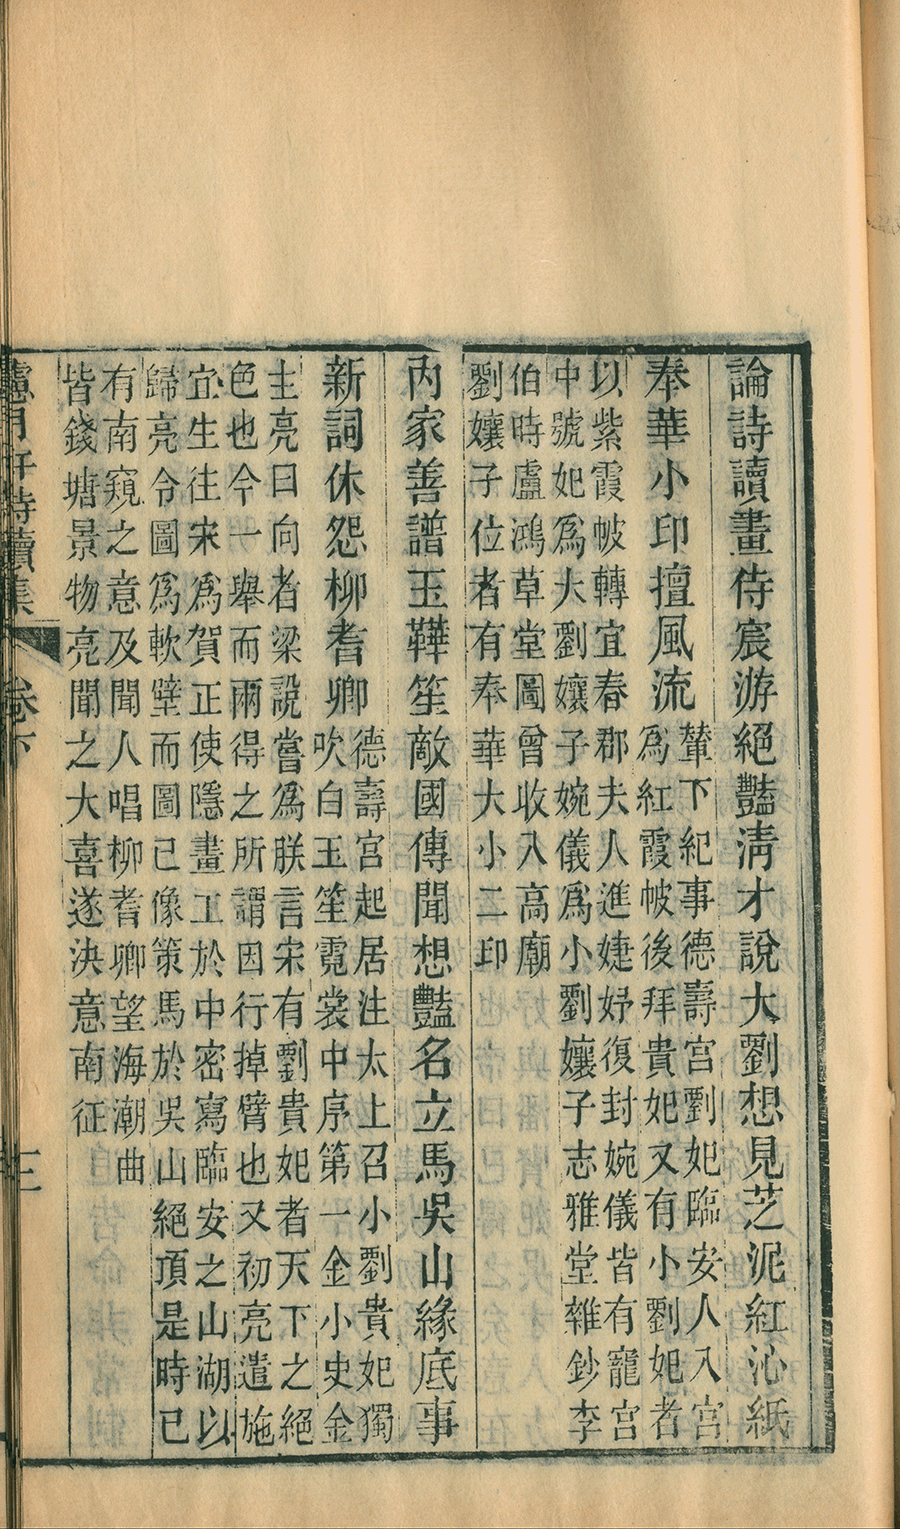 論詩讀畫侍宸游絕豔淸才說大劉想見芝泥紅沁紙
奉華小印擅風流
輦下紀事德壽宮劉妃臨安人入宮
爲紅霞帔後拜貴妃又有小劉妃者
以紫霞帔轉宜春郡夫人進婕妤復封婉儀皆有寵宮
中號妃爲大劉孃子婉儀爲小劉孃子志雅堂雜鈔李
伯時盧鴻草堂圖曾收入高廟
劉孃子位者有奉華大小二印
內家善譜玉鞾笙敵國傳聞想豔名立馬吳山緣底事
新詞休怨柳耆卿
德壽宮起居注太上召小劉貴妃獨
吹白玉笙霓裳中序第一金小史金
主亮曰向者梁說嘗爲朕言宋有劉貴妃者天下之絕
色也今一舉而兩得之所謂因行掉臂也又初亮遣施
宜生往宋爲賀正使隱畫工於中密寫臨安之山湖以
歸亮令圖爲軟壁而圖已像策馬於吳山絕頂是時已
有南窺之意及聞人唱柳耆卿望海潮曲
皆錢塘景物亮聞之大喜遂決意南征
月軒詩續集
卷下
三